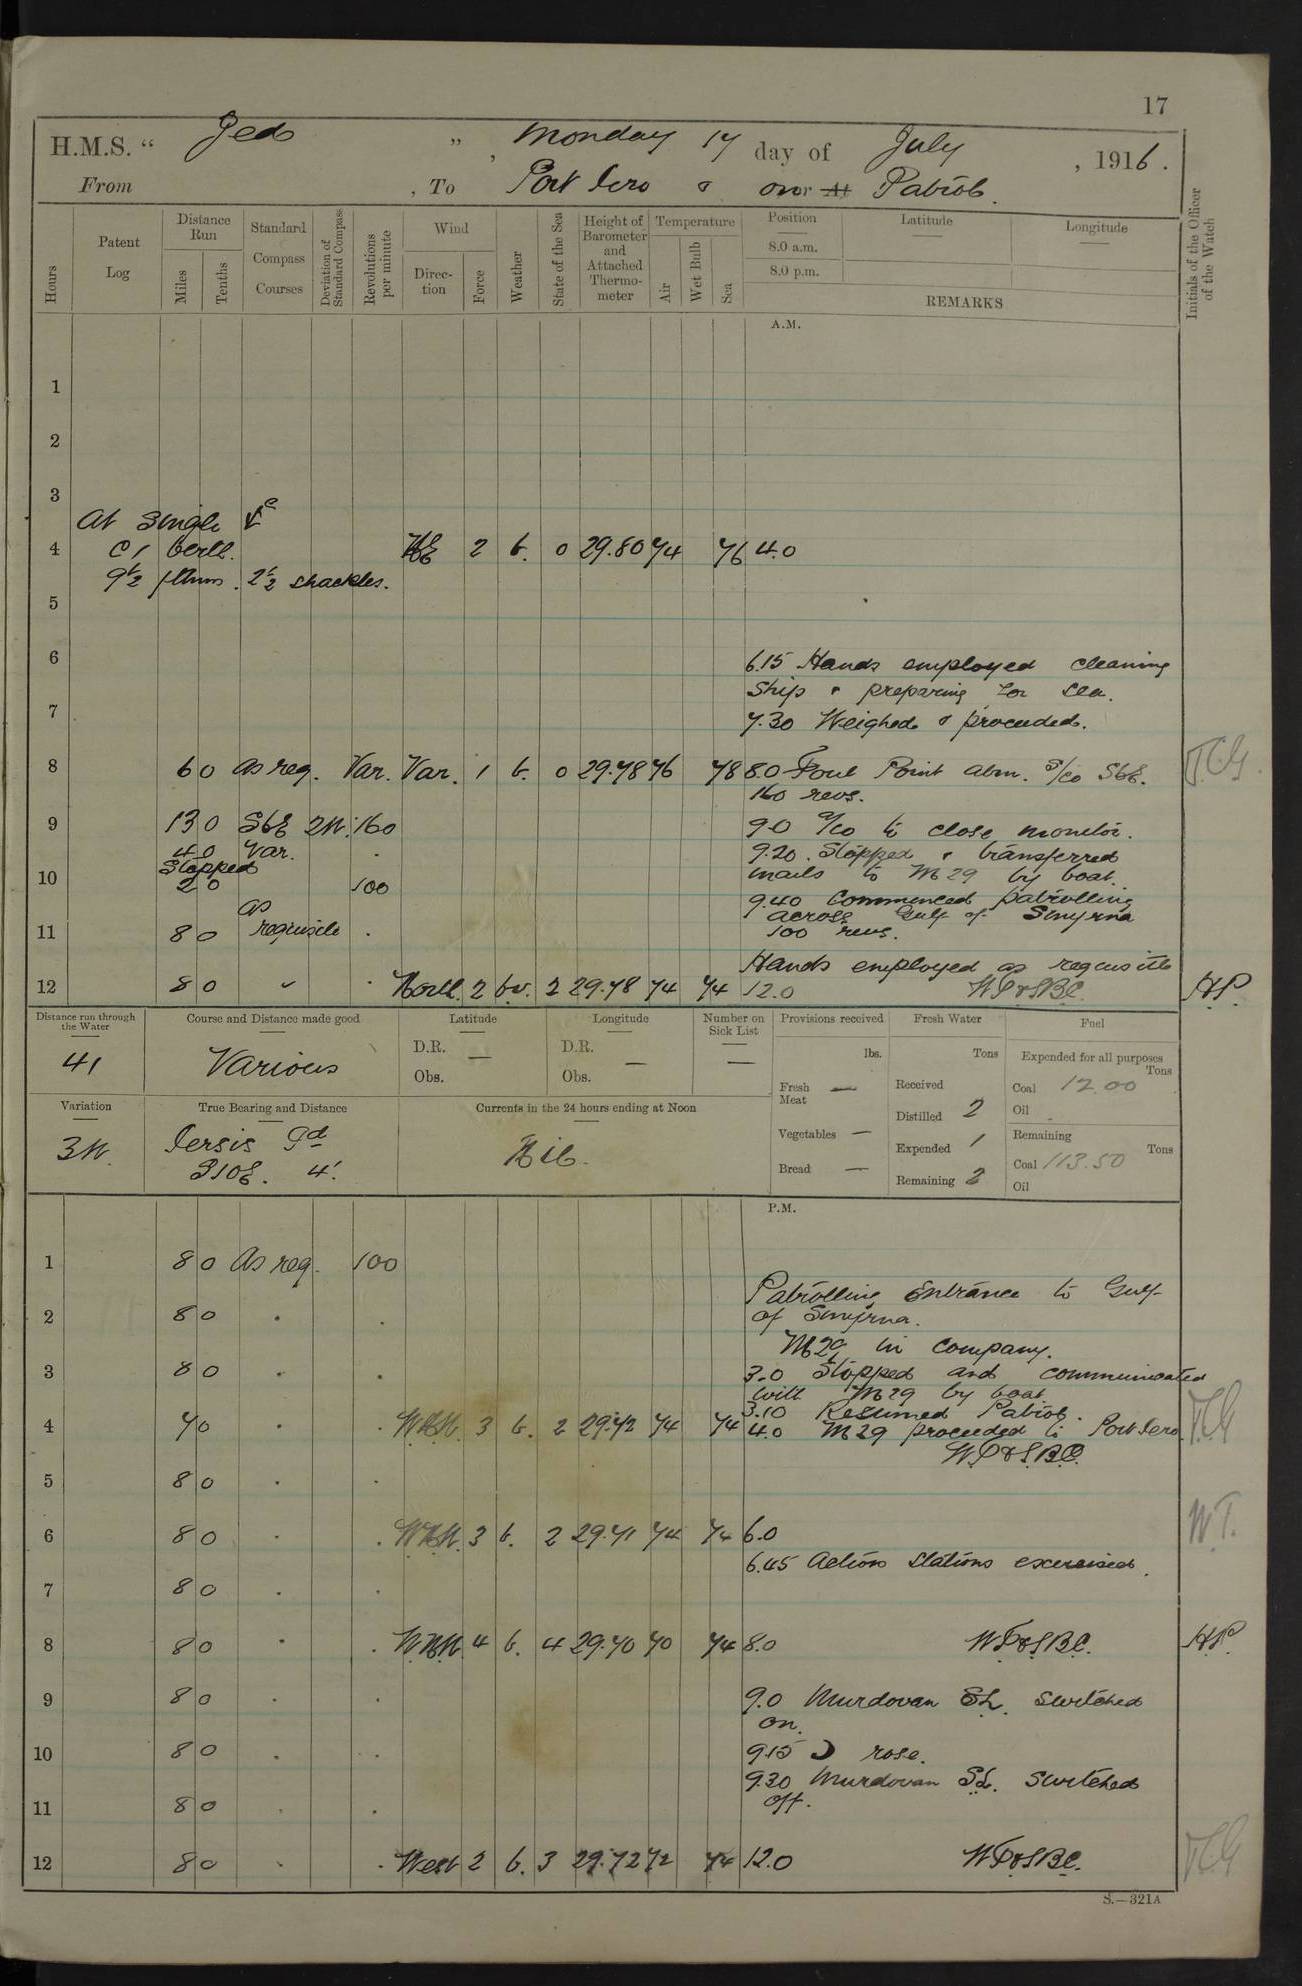 17
H.M.S. " Jed ", Monday 17 day of July, 1916.
From , To Port Iero & on or At Patrol.
Hours
Patent Log
Distance Run
Miles
Tenths
Standard Compass Courses
Deviation of Standard Compass
Revolutions per minute
Wind
Direction
Force
Weather
State of the Sea
Height of Barometer and Attached Thermometer
Temperature
Air
Wet Bulb
Sea
Position
8.0 a.m.
8.0 p.m.
Latitude
Longitude
REMARKS
Initials of the Officer of the Watch
A.M.
1
2
3
At Single
4 C 1 berth. 2 b. 0 29.80 74 76 4.0
9½ fthms. 2½ shackles.
5
6 6.15 Hands employed cleaning
Ship & preparing for sea.
7 7.30 Weighed & proceeded.
8 6 0 As req. Var. Var. 1 b. 0 29.78 76 78 8.0 Foul Point abm. S/co SbE. T.G.
160 revs.
9 13 0 SbE 2W. 160 9.0 A/co to close monitor.
4 0 Var. . 9.20. Stopped & transferred
Stopped mails to M 29 by boat.
10 2 0 100 9.40 Commenced patrolling
as across Gulf of Smyrna
11 8 0 requisite . 100 revs.
Hands employed as requisite
12 8 0 " . North. 2 bv. 2 29.78 74 74 12.0 W.P.&S.B.C. H.P.
Distance run through the Water
41
Course and Distance made good
Various
Latitude
D.R. —
Obs.
Longitude
D.R. —
Obs.
Number on Sick List
—
Provisions received
lbs.
Fresh Meat —
Vegetables —
Bread —
Fresh Water
Tons
Received
Distilled 2
Expended 1
Remaining 2
Fuel
Expended for all purposes
Tons
Coal 12.00
Oil .
Remaining
Tons
Coal 113.50
Oil
Variation
3W.
True Bearing and Distance
S10E. 4'.
Currents in the 24 hours ending at Noon
Nil.
P.M.
1 8 0 As req. 100
Patrolling Entrance to Gulf
2 8 0 . . of Smyrna.
M29 in company.
3 8 0 . . 3.0 Stopped and communicated
with M29 by boat
3.10 Resumed Patrol.
4 7 0 . . 3 b. 2 29.72 74 74 4.0 M29 proceeded to Port Iero. T.G.
W.P.&S.B.C.
5 8 0 . .
6 8 0 . . 3 b. 2 29.71 74 74 6.0 W.T.
6.45 Action Stations exercised.
7 8 0 . .
8 8 0 . . WNW. 4 b. 4 29.70 70 74 8.0 W.P.&S.B.C. H.P.
9 8 0 . . 9.0 Murdovan S.L. switched
on.
10 8 0 . . 9.15 ☽ rose.
9.30 Murdovan S.L. switched
11 8 0 . . off.
12 8 0 . . West 2 b. 3 29.72 72 74 12.0 W.P.&S.B.C. T.G.
S.—321A